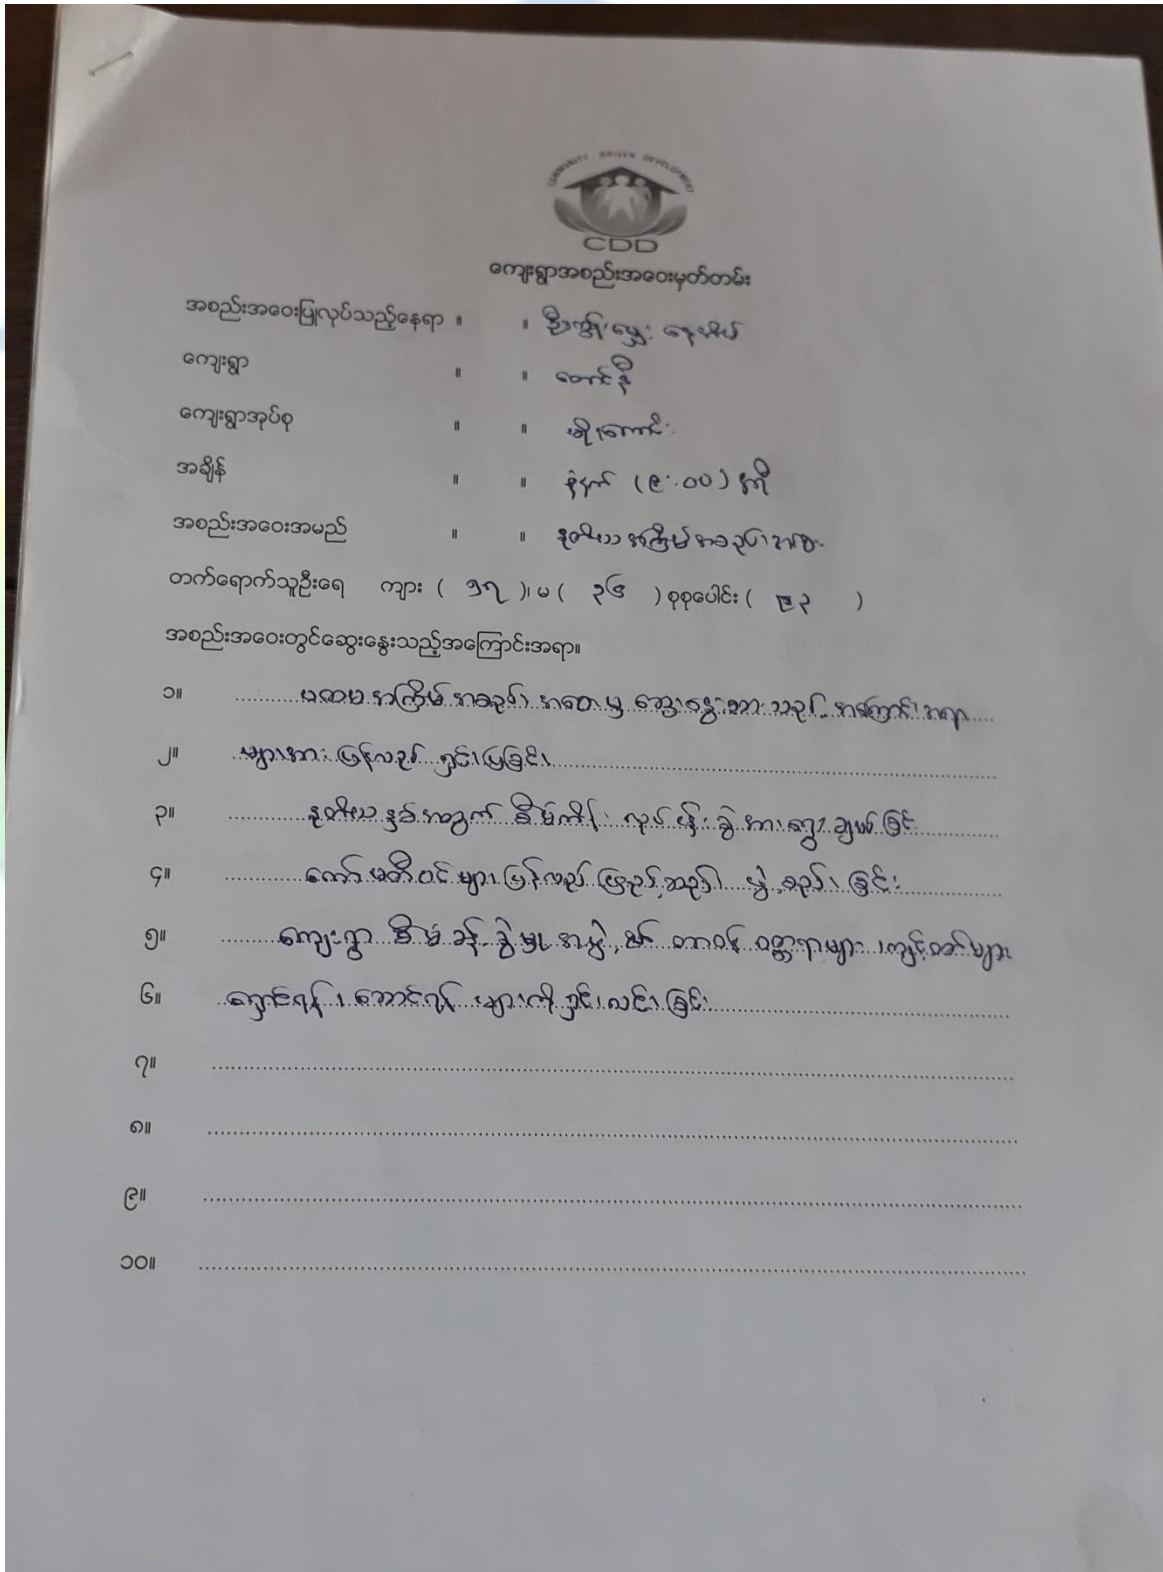 COMMUNITY DRIVEN DEVELOPMENT
CDD
ကျေးရွာအစည်းအဝေးမှတ်တမ်း
အစည်းအဝေးပြုလုပ်သည့်နေရာ ။ ။ နေအိမ်
ကျေးရွာ ။ ။ တောင်နီ
ကျေးရွာအုပ်စု ။ ။
အချိန် ။ ။ နံနက် (၉:၀၀) နာရီ
အစည်းအဝေးအမည် ။ ။ ဒုတိယအကြိမ်အစည်းအဝေး
တက်ရောက်သူဦးရေ ကျား ( ၁၇ )၊ မ ( ၃၆ ) စုစုပေါင်း ( ၅၃ )
အစည်းအဝေးတွင်ဆွေးနွေးသည့်အကြောင်းအရာ။
၁။ ပထမအကြိမ်အစည်းအဝေးမှ ဆွေးနွေးထားသည့်အကြောင်းအရာ
၂။ များအား ပြန်လည်ရှင်းပြခြင်း
၃။ ဒုတိယနှစ်အတွက် စီမံကိန်းလုပ်ငန်းခွဲအားရွေးချယ်ခြင်း
၄။ ကော်မတီဝင်များ ပြန်လည်ဖြည့်ဆည်း ဖွဲ့စည်းခြင်း
၅။ ကျေးရွာ စီမံခန့်ခွဲမှုအဖွဲ့၏ တာဝန်ဝတ္တရားများ၊ ကျင့်ဝတ်များ
၆။ ရှောင်ရန်၊ ဆောင်ရန် များကိုရှင်းလင်းခြင်း
၇။
၈။
၉။
၁၀။